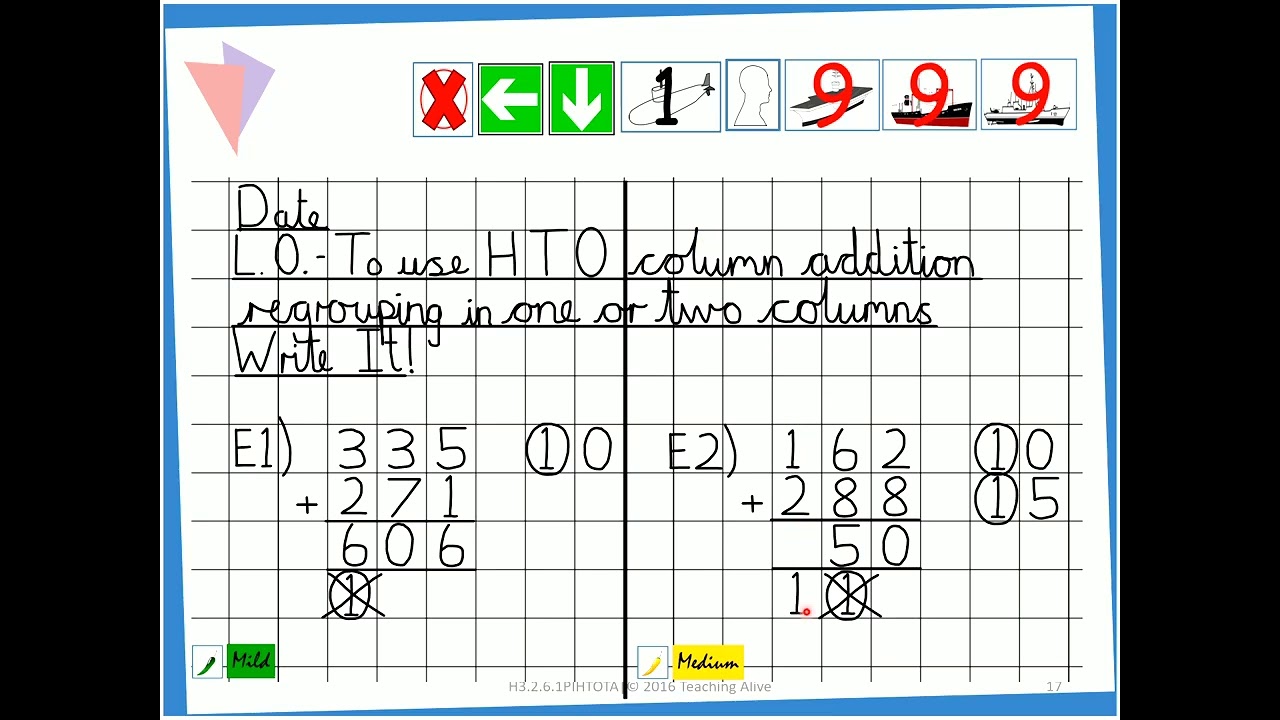 X 1 9 9 9
Date
L.O.- To use HTO column addition
regrouping in one or two columns
Write It!
E1) 3 3 5 ① 0
+ 2 7 1
6 0 6
①
E2) 1 6 2 ① 0
+ 2 8 8 ① 5
5 0
1 ①
Mild
Medium
H3.2.6.1PIHTOTA © 2016 Teaching Alive 17